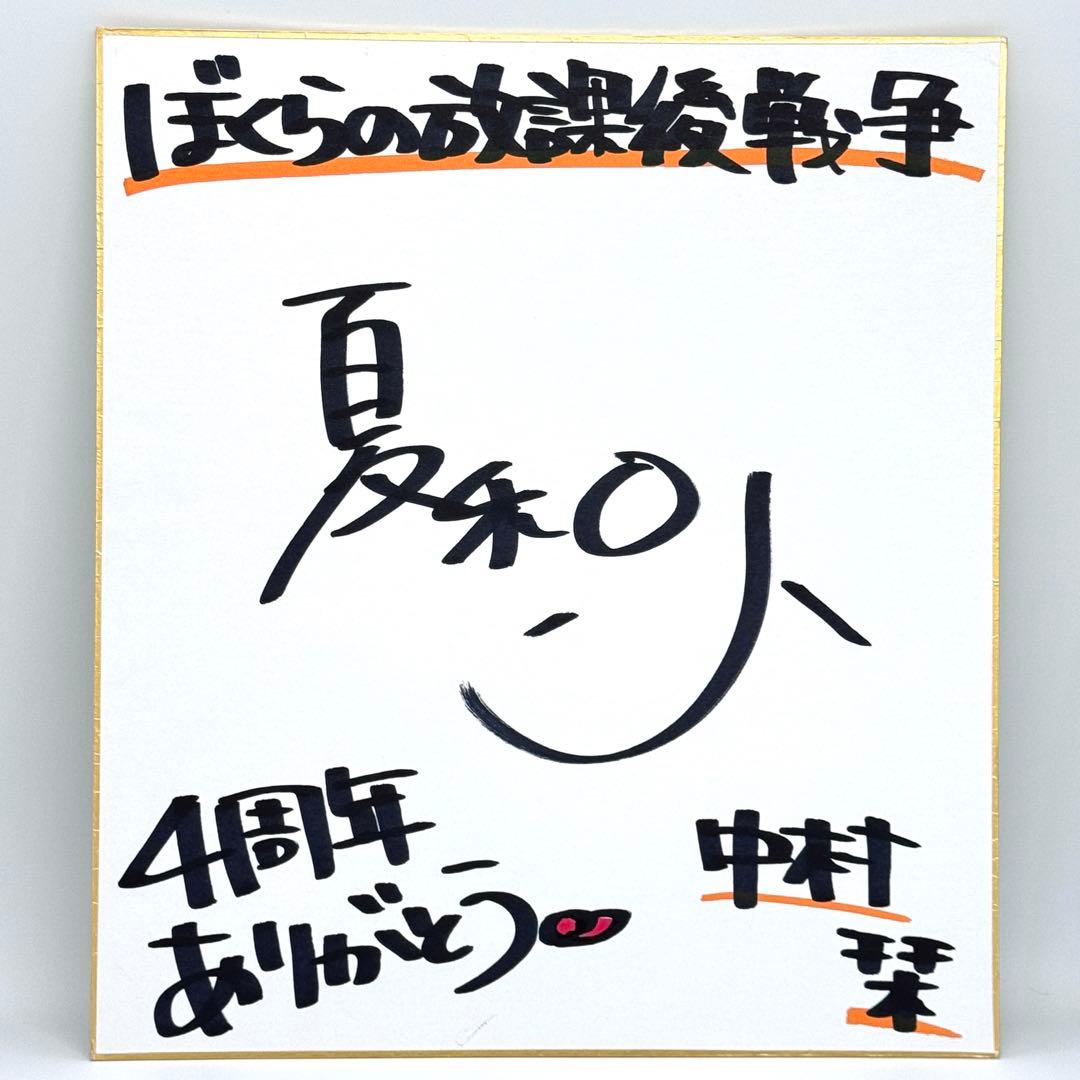 ぼくらの放課後戦争
夏和小
4周年
ありがとう
中村
栞